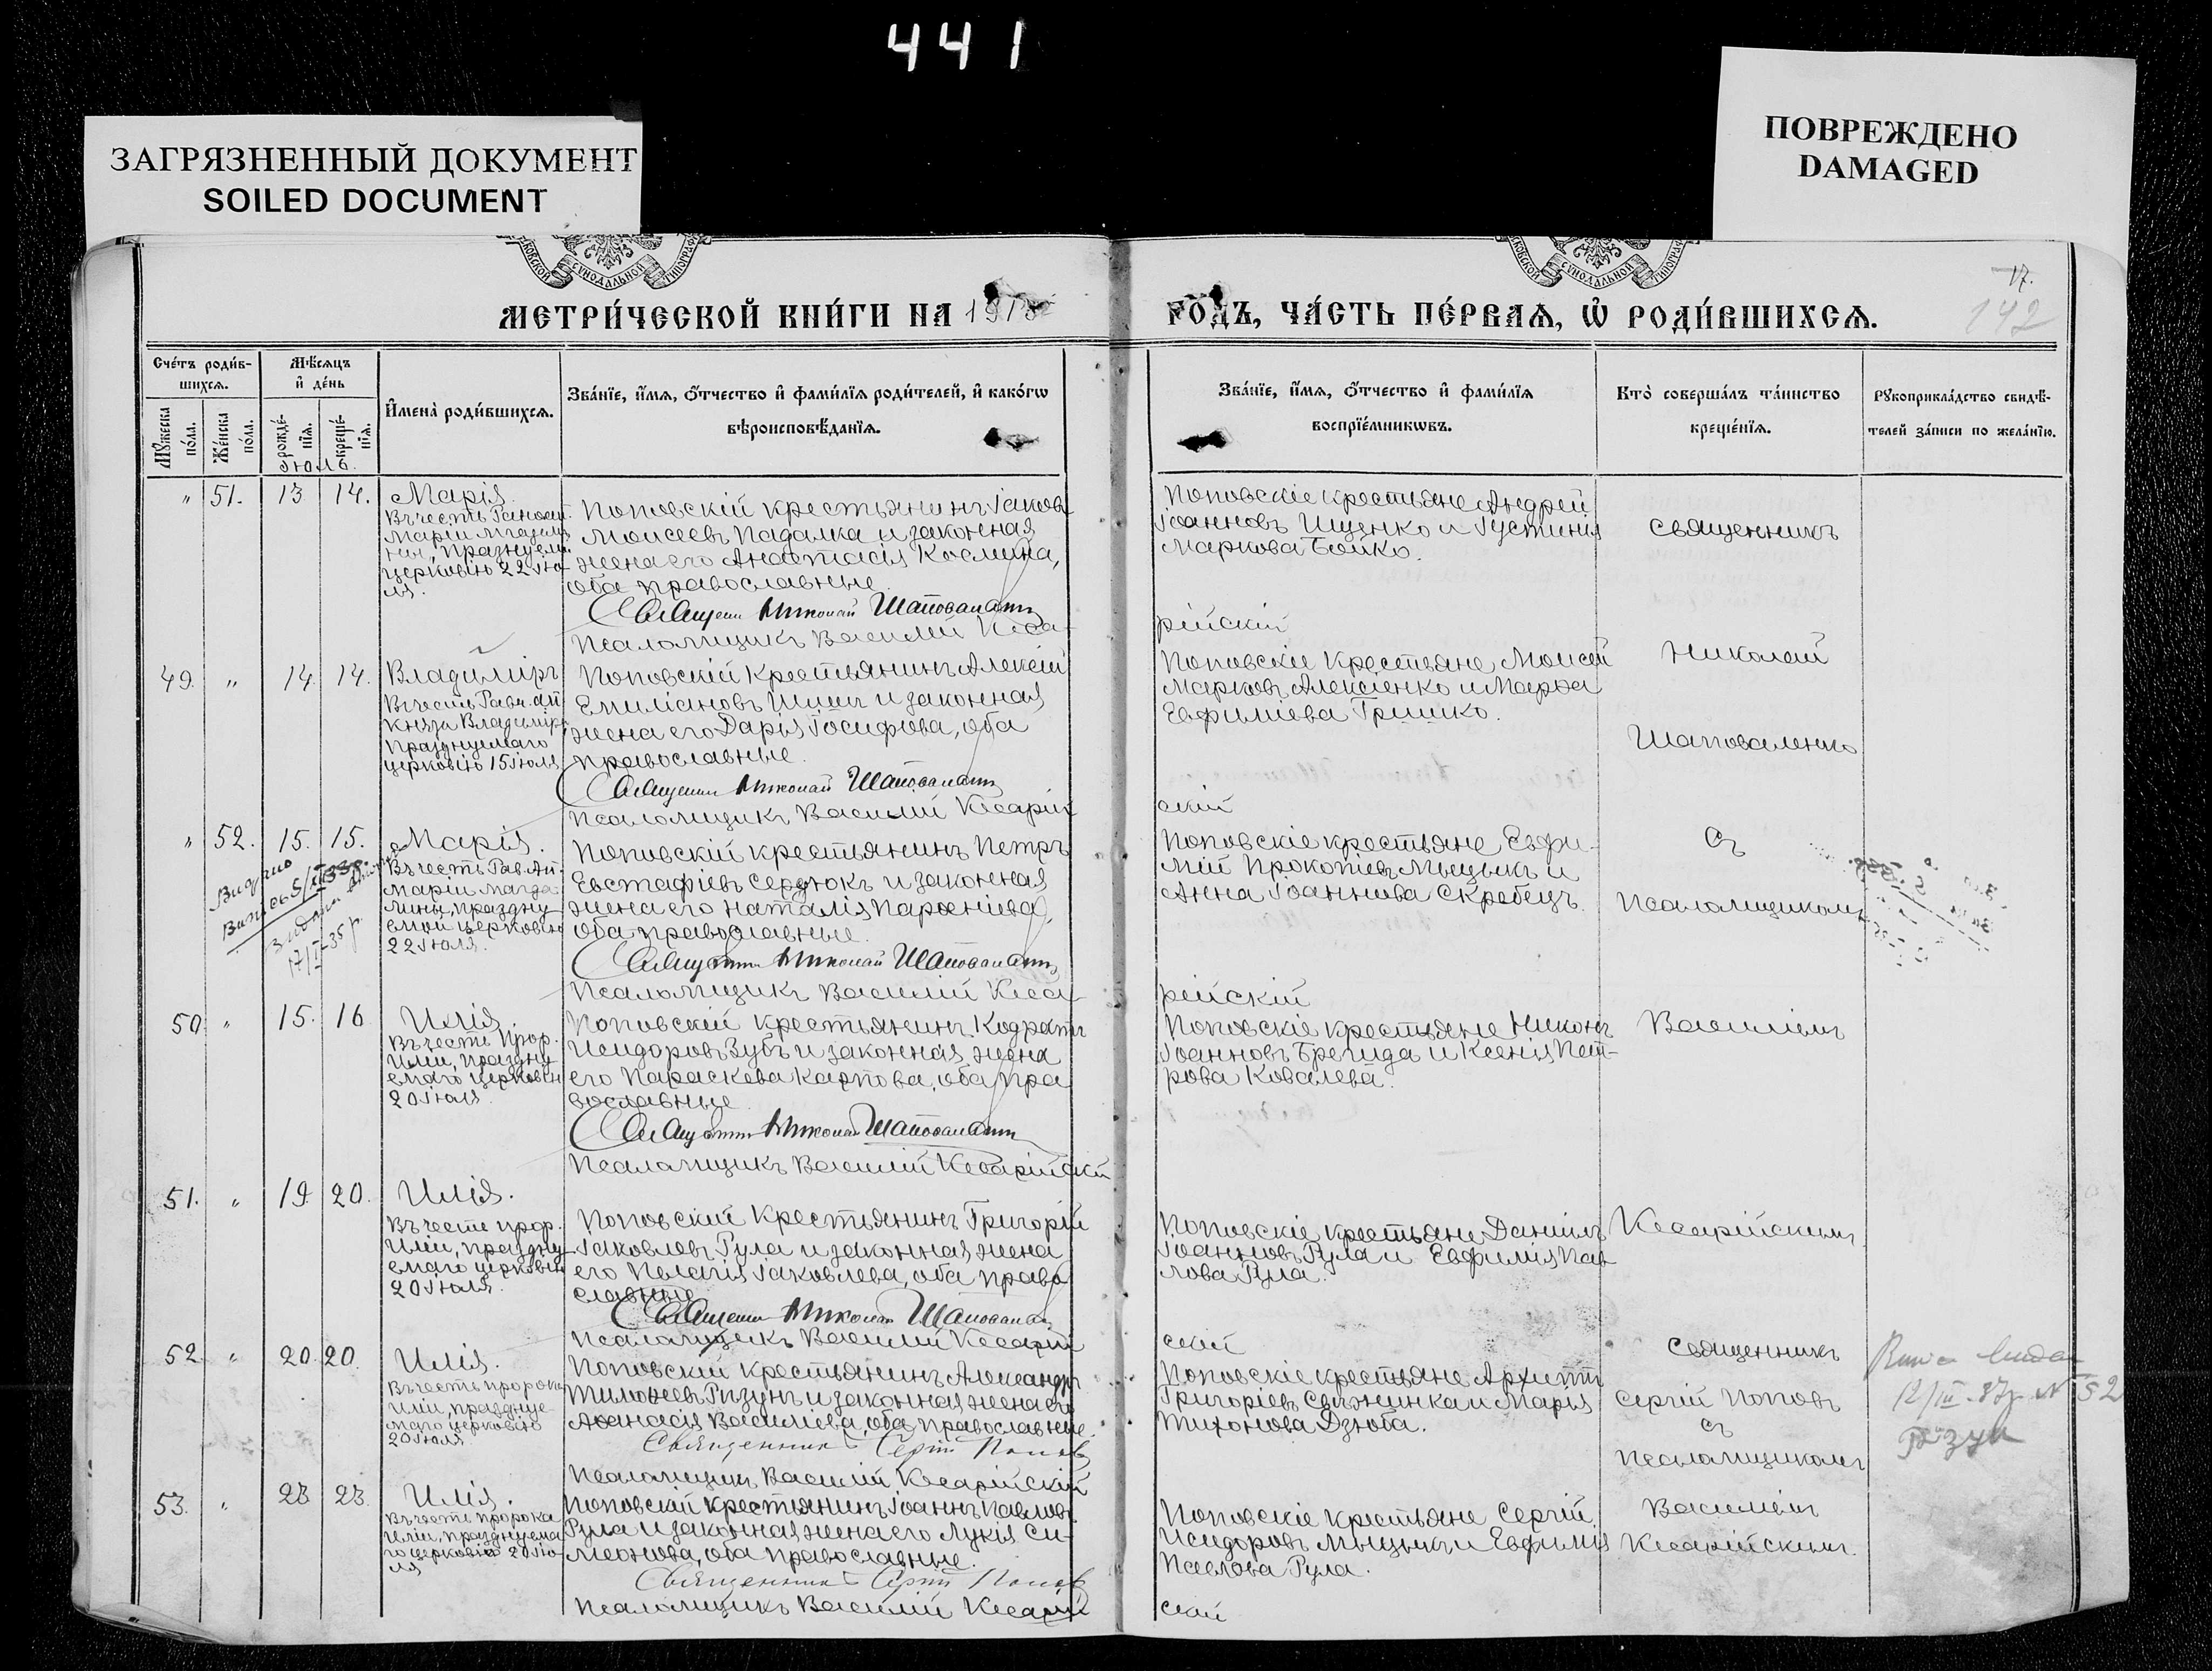 441
ЗАГРЯЗНЕННЫЙ ДОКУМЕНТ
SOILED DOCUMENT
ПОВРЕЖДЕНО
DAMAGED
СѴНОДАЛЬНОЙ
СѴНОДАЛЬНОЙ
17.
142
МЕТРИ́ЧЕСКОЙ КНИ́ГИ НА 191
ГО́ДЪ, ЧА́СТЬ ПЕ́РВАѦ, Ѡ҆ РОДИ́ВШИХСѦ.
Сче́тъ роди́в-
шихсѧ.
Мѣ́сѧцъ
и҆ де́нь
И҆мена̀ роди́вшихсѧ.
Зва́нїе, и҆́мѧ, ѻ҆́тчество и҆ фами́лїѧ роди́телей, и҆ како́гѡ
вѣроисповѣ́данїѧ.
Мꙋ́жеска
по́ла.
Же́нска
по́ла.
рожде́-
нїѧ.
креще́-
нїѧ.
Іюль.
Зва́нїе, и҆́мѧ, ѻ҆́тчество и҆ фами́лїѧ
воспрїе́мникѡвъ.
Кто̀ соверша́лъ та́инство
креще́нїѧ.
Рꙋкоприкла́дство свидѣ́-
телей за́писи по жела́нїю.
" 51. 13 14. Марія.
Въ честь Равноап.
Маріи Магдали
ны, празднуем.
церковію 22 Ію-
ля.
Поповскій крестьянинъ Іаковъ
Моисеевъ Падалка и законная
жена его Анастасія Космина,
оба православные.
Священ Николай Шаповаленко
Псаломщикъ Василій Кеса-
рійскій
Поповскіе крестьяне Андрей
Іоанновъ Ищенко и Іустинія
Маркова Бойко.
Священникъ
49. " 14. 14. Владиміръ
Въ честь Равн. ап
Князя Владиміра,
празднуемаго
церковію 15 Іюля
Поповскій крестьянинъ Алексій
Емиліановъ и законная
жена его Дарія Іосифова, оба
православные.
Священник Николай Шаповаленко
Псаломщикъ Василій Кесарій
скій
Поповскіе крестьяне Моисей
Марковъ Алексіенко и Марѳа
Евфиміева Гришко.
Николай
Шаповаленко
" 52. 15. 15. Марія.
Въ честь Рав. Ап.
Маріи Магда
лины, праздну
емой церковію
22 Іюля.
17/I 35 р.
Поповскій крестьянинъ Петръ
Евстафіевъ Сердюкъ и законная
жена его Наталія Парѳеніева,
оба православные.
Священник Николай Шаповаленко
Псаломщикъ Василій Кеса-
рійскій
Поповскіе крестьяне Евфи-
мій Прокопіевъ Мыцыкъ и
Анна Іоаннова Скребецъ.
Съ
Псаломщикомъ
50. " 15. 16 Илія
Въ честь Прор.
Иліи, праздну
емаго церковію
20 Іюля.
Поповскій крестьянинъ Кодратъ
Исидоровъ Зубъ и законная жена
его Параскева Карпова, оба пра
вославные
Священник Николай Шаповаленко
Псаломщикъ Василій Кесарійскій
Поповскіе крестьяне Никонъ
Іоанновъ Брегида и Ксенія Пет-
рова Ковалева.
Василіемъ
51. " 19 20. Илія.
Въ честь прор.
Иліи, праздну
емаго церковію
20 Іюля.
Поповскій крестьянинъ Григорій
Іаковлевъ Рула и законная жена
его Пелагія Іаковлева, оба право
славные
Священ Николай Шаповален
Псаломщикъ Василій Кесарій
скій
Поповскіе крестьяне Даніилъ
Іоанновъ Рула и Евфимія Пав
лова Рула.
Кесарійскимъ
52. " 20. 20. Илія.
Въ честь пророка
Иліи, празднуе-
маго церковію
20 Іюля
Поповскій крестьянинъ Александръ
Тимоѳеевъ Ризунъ и законная жена его
Аѳанасія Василіева, оба православные.
Священникъ Сергій Поповъ
Псаломщикъ Василій Кесарійскій
Поповскіе крестьяне Архиппъ
Григоріевъ Свѣжинка и Марія
Тихонова Дзюба.
Священникъ
Сергій Поповъ
съ
Псаломщикомъ
12/III. 37р. № 52
53. " 23 23. Илія.
Въ честь пророка
Иліи, празднуема
го церковію 20 Ію-
ля
Поповскій крестьянинъ Іоаннъ Павловъ
Рула и законная жена его Лукія Си-
меонова, оба православные.
Священникъ Сергій Поповъ
Псаломщикъ Василій Кесарій
скій
Поповскіе крестьяне Сергій
Исидоровъ Мыцыкъ и Евфимія
Павлова Рула.
Василіемъ
Кесарійскимъ.